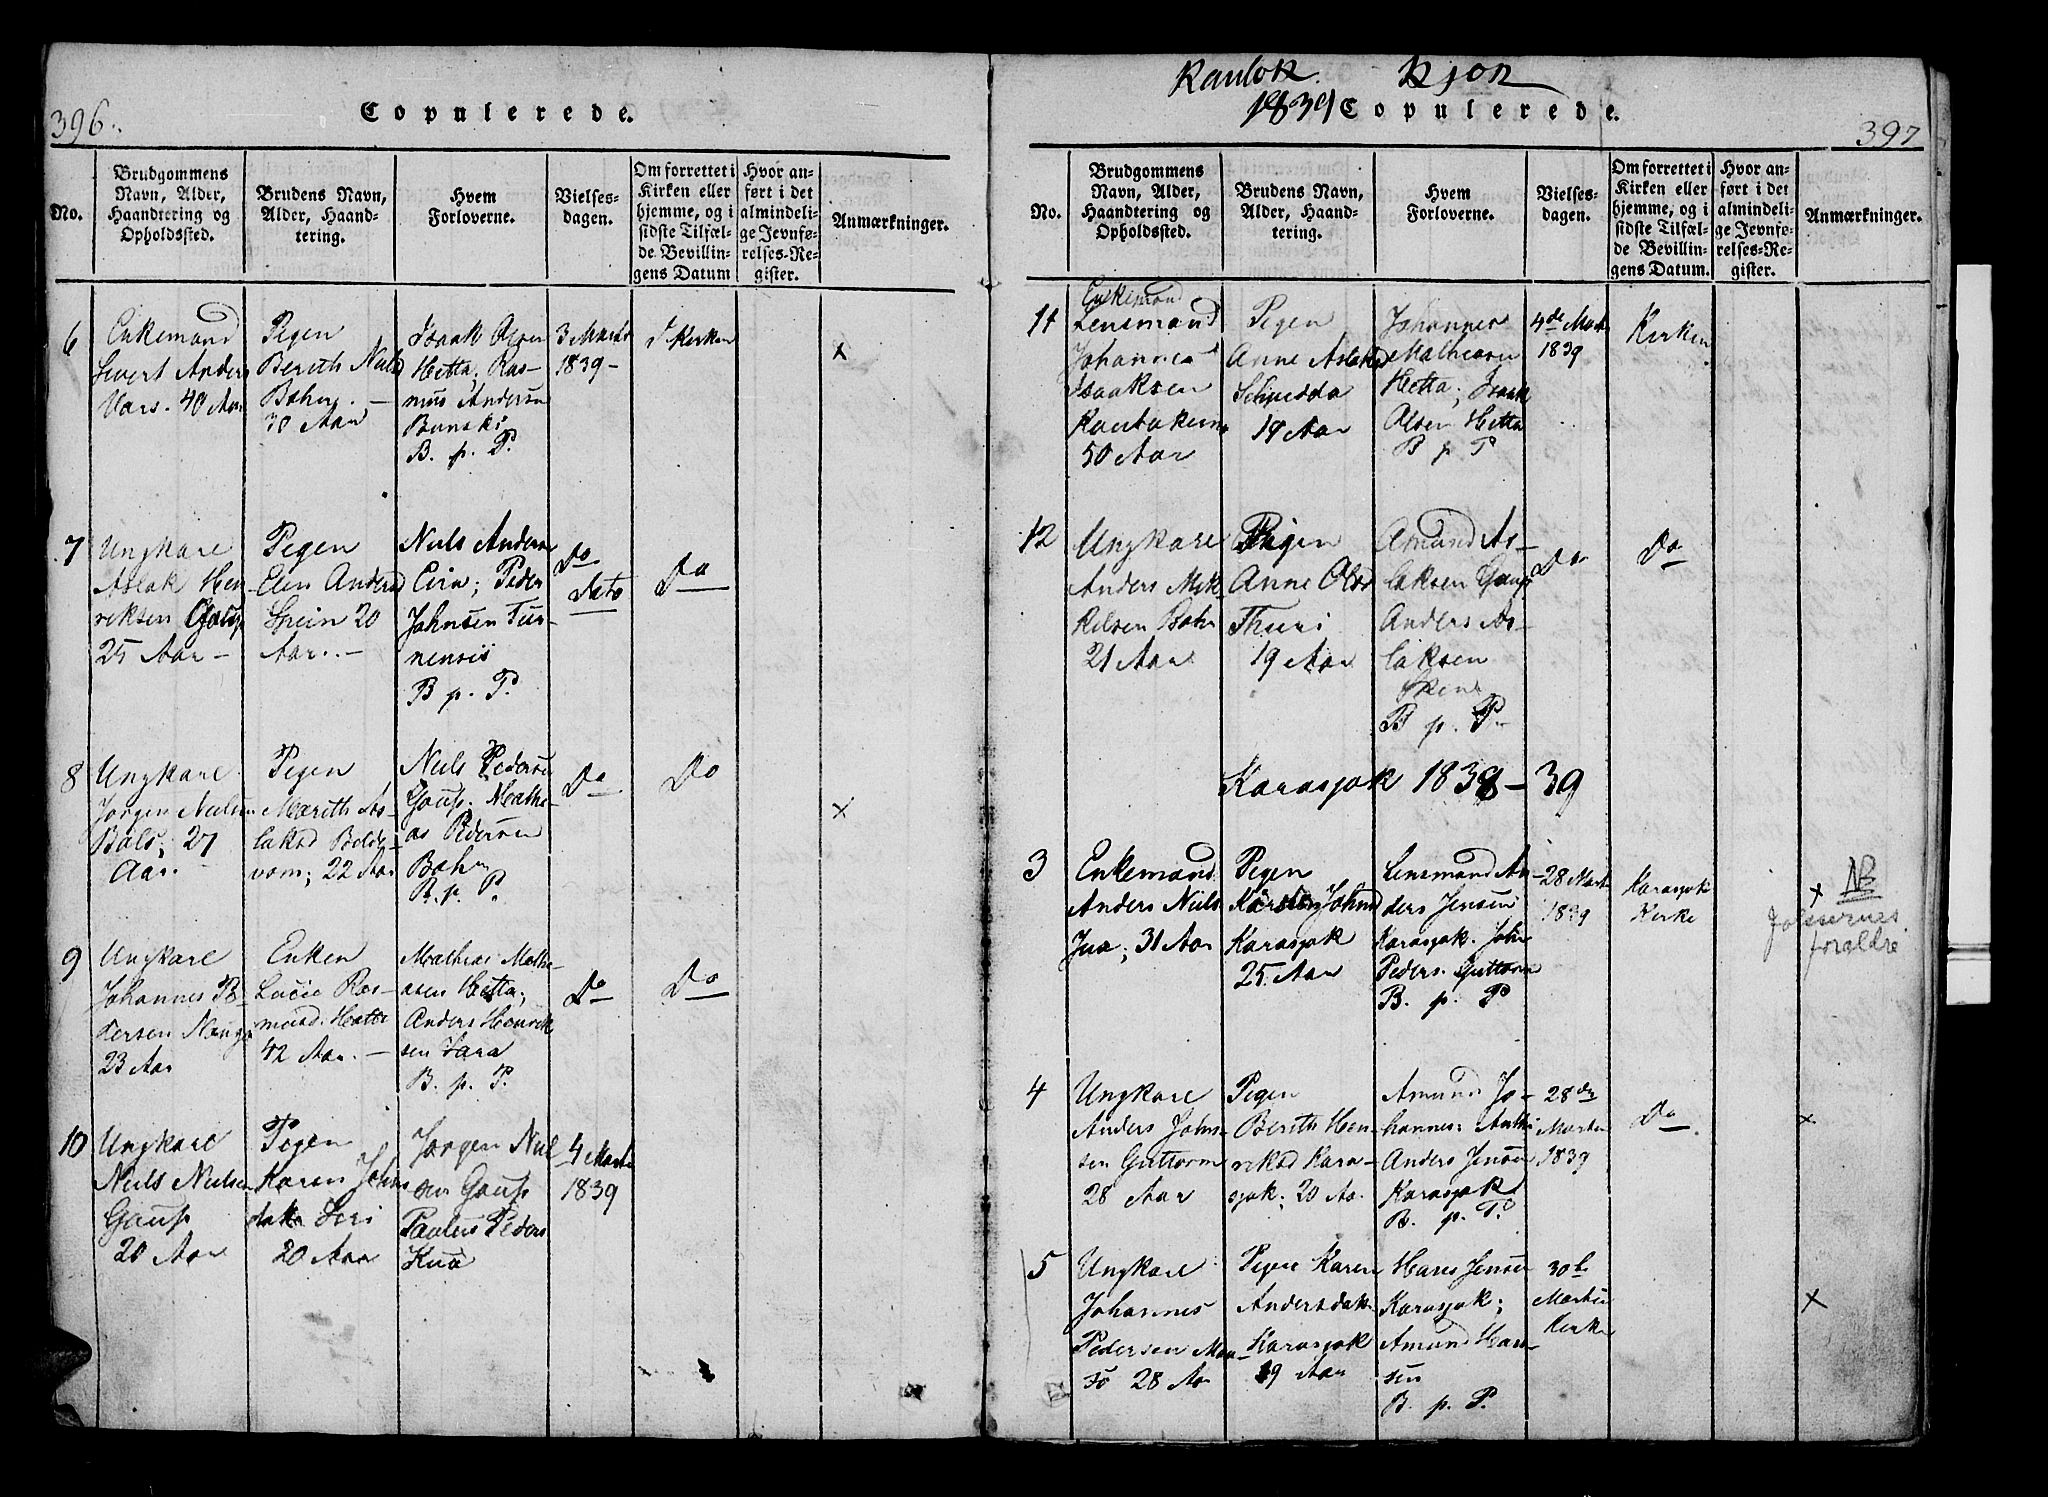 396.
Copulerede.
No.
Brudgommens
Navn, Alder,
Haandtering og
Opholdssted.
Brudens Navn,
Alder, Haand-
tering.
Hvem
Forloverne.
Vielses-
dagen.
Om forrettet i
Kirken eller
hjemme, og i
sidste Tilfæl-
de Bevillin-
gens Datum
Hvor an-
ført i det
almindeli-
ge Jevnfø-
relses-Re-
gister.
Anmærkninger.
6
Enkemand
Sivert Anders
Vars. 40 Aar
Pigen
Berith Niels
Bahr. —
30 Aar
Isaak Olsen
Hetta; Ras-
mus Andersen
Banski
B. p. P.
3 Marts
1839 -
I Kirken
x
7
Ungkare
Aslak Hen-
riksen Gaup
25 Aar —
Pigen
Elen Anders
Spein 20
Aar. . —
Niels Anders
Eira; Peder
Johnsen Tur-
nensis
B p. P.
Do
Dato
Do
8
Ungkare
Jørgen Nielsen
Bals; 27
Aar.
Pigen
Marith As-
laksd Beldo-
vom; 22 Aar
Niels Pedersen
Gaup; Mathe-
as Pedersen
Bahr
B. p. P.
Do
Do
x
9
Ungkare
Johannes Pe-
dersen Nango
23 Aar
Enken
Lucie Ras-
musd. Hetta
42 Aar. —
Mathias Mathi-
asen Hetta;
Anders Henrik
sen Sara
B. p. P.
Do
Do
10
Ungkare
Niels Nielsen
Gaup
20 Aar
Pigen
Karen Johns
datr Siri
20 Aar
Jørgen Niel
sen Gaup
Paulus Peders
Kua
4 Marts
1839
Kautok. Kjon
1839 Copulerede.
397
No.
Brudgommens
Navn, Alder,
Haandtering og
Opholdssted.
Brudens Navn,
Alder, Haand-
tering.
Hvem
Forloverne.
Vielses-
dagen.
Om forrettet i
Kirken eller
hjemme, og i
sidste Tilfæl-
de Bevillin-
gens Datum.
Hvor an-
ført i det
almindeli-
ge Jevnfø-
relses-Re-
gister.
Anmærkninger.
11
Enkemand
Lensmand
Johannes
Isaaksen
Kautokeino
50 Aar
Pigen
Anne Aslaksd
Schuedda
19 Aar
Johannes
Mathiasen
Hetta; Isaak
Olsen Hetta
B p P
4de Marts
1839
Kirken
12
Ungkare
Anders Mik-
kelsen Bahr
21 Aar
Pigen
Anne Olsd
Thuri
19 Aar
Amund As-
laksen Gaup
Anders As-
laksen
Skena
B p. P.
Do
Do
Karasjok 1838-39
3
Enkemand
Anders Niels
Jua; 31 Aar
Pigen
Kirsten Johnsd
Karasjok
25. Aar
Lensmand An-
ders Jensen
Karasjok. John
Peders. Guttorm
B. p. P
28 Marts
1839
Karasjok
Kirke
x
NB
forældre
4
Ungkare
Anders Johns-
sen Guttorm
28 Aar
Pigen
Berith Hen-
riksd Kara-
sjok; 20 Aar
Amund Jo-
hannes: Anthi
Anders Jensen
Karasjok
B. p. P.
28de
Martii
1839
Do
x
5
Ungkare
Johannes
Pedersen Maa-
sø 28 Aar
Pigen Karen
Andersdatr
Karasjok
19 Aar
Hans Jensen
Karasjok;
Amund Han-
sen
B. p. P.
30te
Martii
Kirke
x